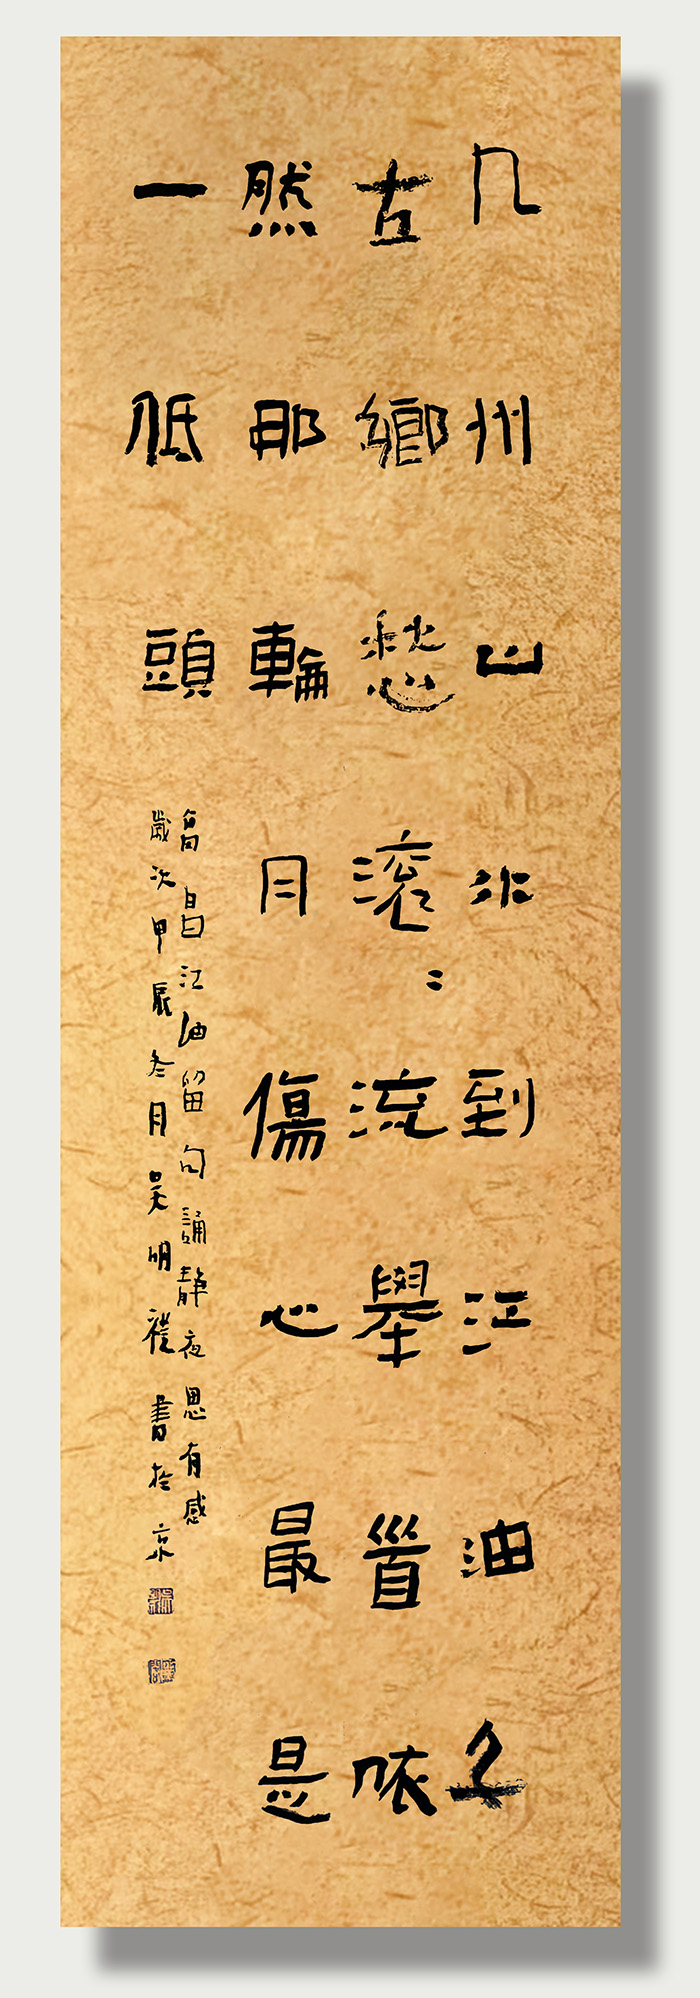 九州山水到江油千
古鄉愁滾〻流舉首依
然那輪月傷心最是
一低頭
高昌江油留句誦静夜思有感
歲次甲辰冬月吴明禮書於京